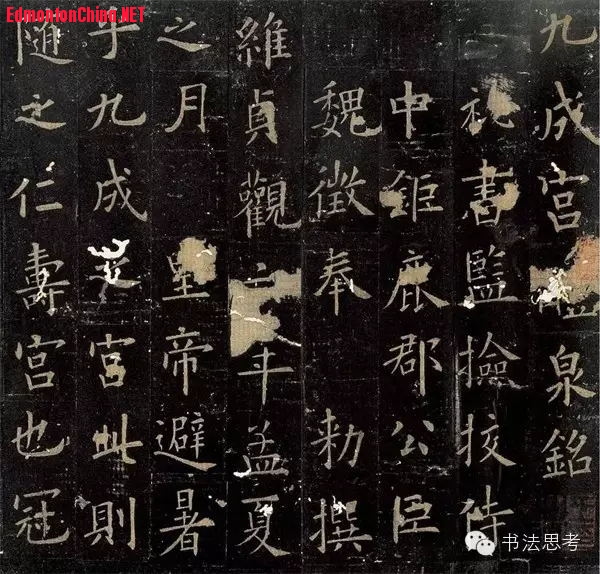 EdmontonChina.NET
九成宮醴泉銘
秘書監撿挍侍
中鉅鹿郡公臣
魏徵奉 勑撰
維貞觀六年孟夏
之月 皇帝避暑
乎九成之宮此則
隨之仁壽宮也冠
书法思考